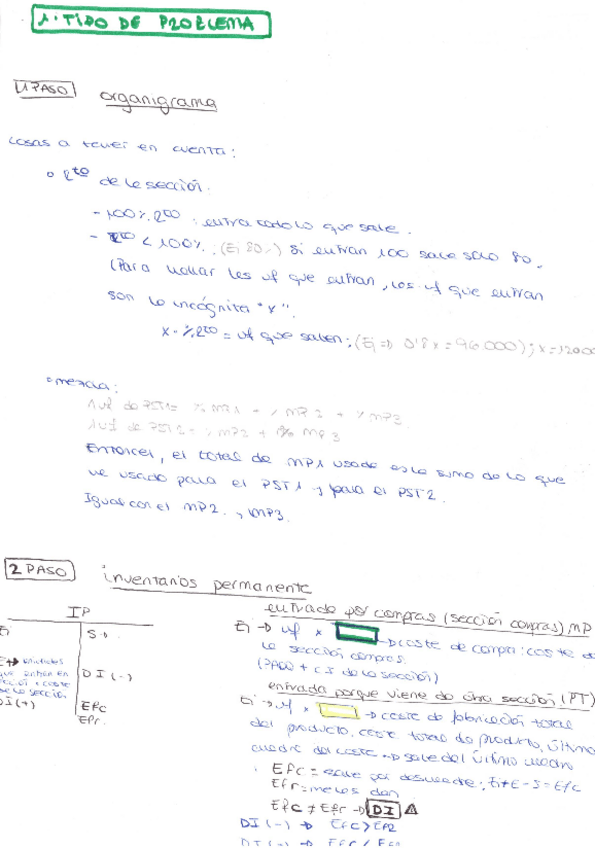 1. TIPO DE PROBLEMA
1 PASO organigrama
cosas a tener en cuenta:
rto de la sección.
- 100% rto : entra todo lo que sale.
- rto < 100% (Ej 80.) Si entran 100 sale solo 80.
(Para hallar las uf que entran, las uf que entran
son la incógnita "x".
x · % rto = uf que salen; (Ej => 0'8x = 96000); x = 12000
mezcla:
1 uf de PST1 = % MP1 + % MP2 + % MP3
1 uf de PST2 = % MP2 + % MP3
Entonces, el total de MP1 usado es la suma de lo que
ve usado para el PST1 y para el PST2.
Igual con el MP2. y MP3.
2 PASO inventarios permanente
IP
Ei
S
unidades
que entran en
sección x coste
de la sección
DI (-)
DI (+)
Efc
Efr.
entrada por compras (sección compras) MP
Ei -> uf x -> coste de compra: coste de
la sección compras.
(PAGO + CS de la sección)
entrada porque viene de otra sección (PT)
Ei -> uf x -> coste de fabricación total
del producto, coste total de producto, último
cuadre del coste -> sale del último cuadro
Efc = sale por descuadre; Ei+E-S=Efc
Efr = me los dan
Efc ≠ Efr -> DI
DI (-) -> Efc > Efr
DI (+) -> Efc < Efr